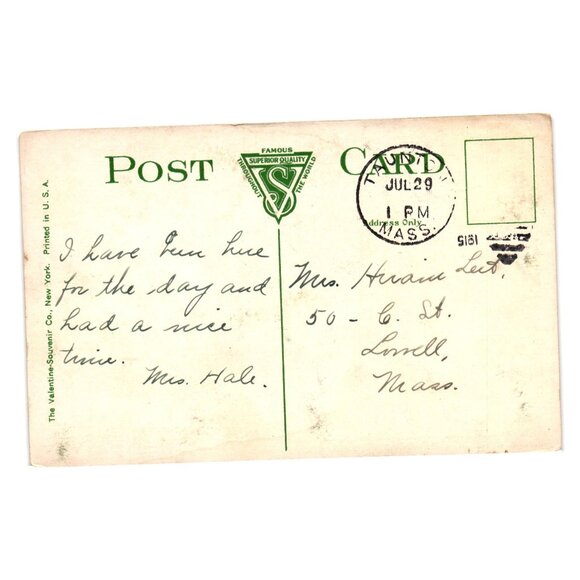 POST CARD
FAMOUS
SUPERIOR QUALITY
THROUGHOUT THE WORLD
VS
Address Only
TAUNTON
JUL 29
1 PM
MASS.
1915
I have been here
for the day and
had a nice
time.
Mrs. Hale.
Mrs. Hiram
50 - C. St.
Lowell,
Mass.
The Valentine-Souvenir Co., New York. Printed in U. S. A.